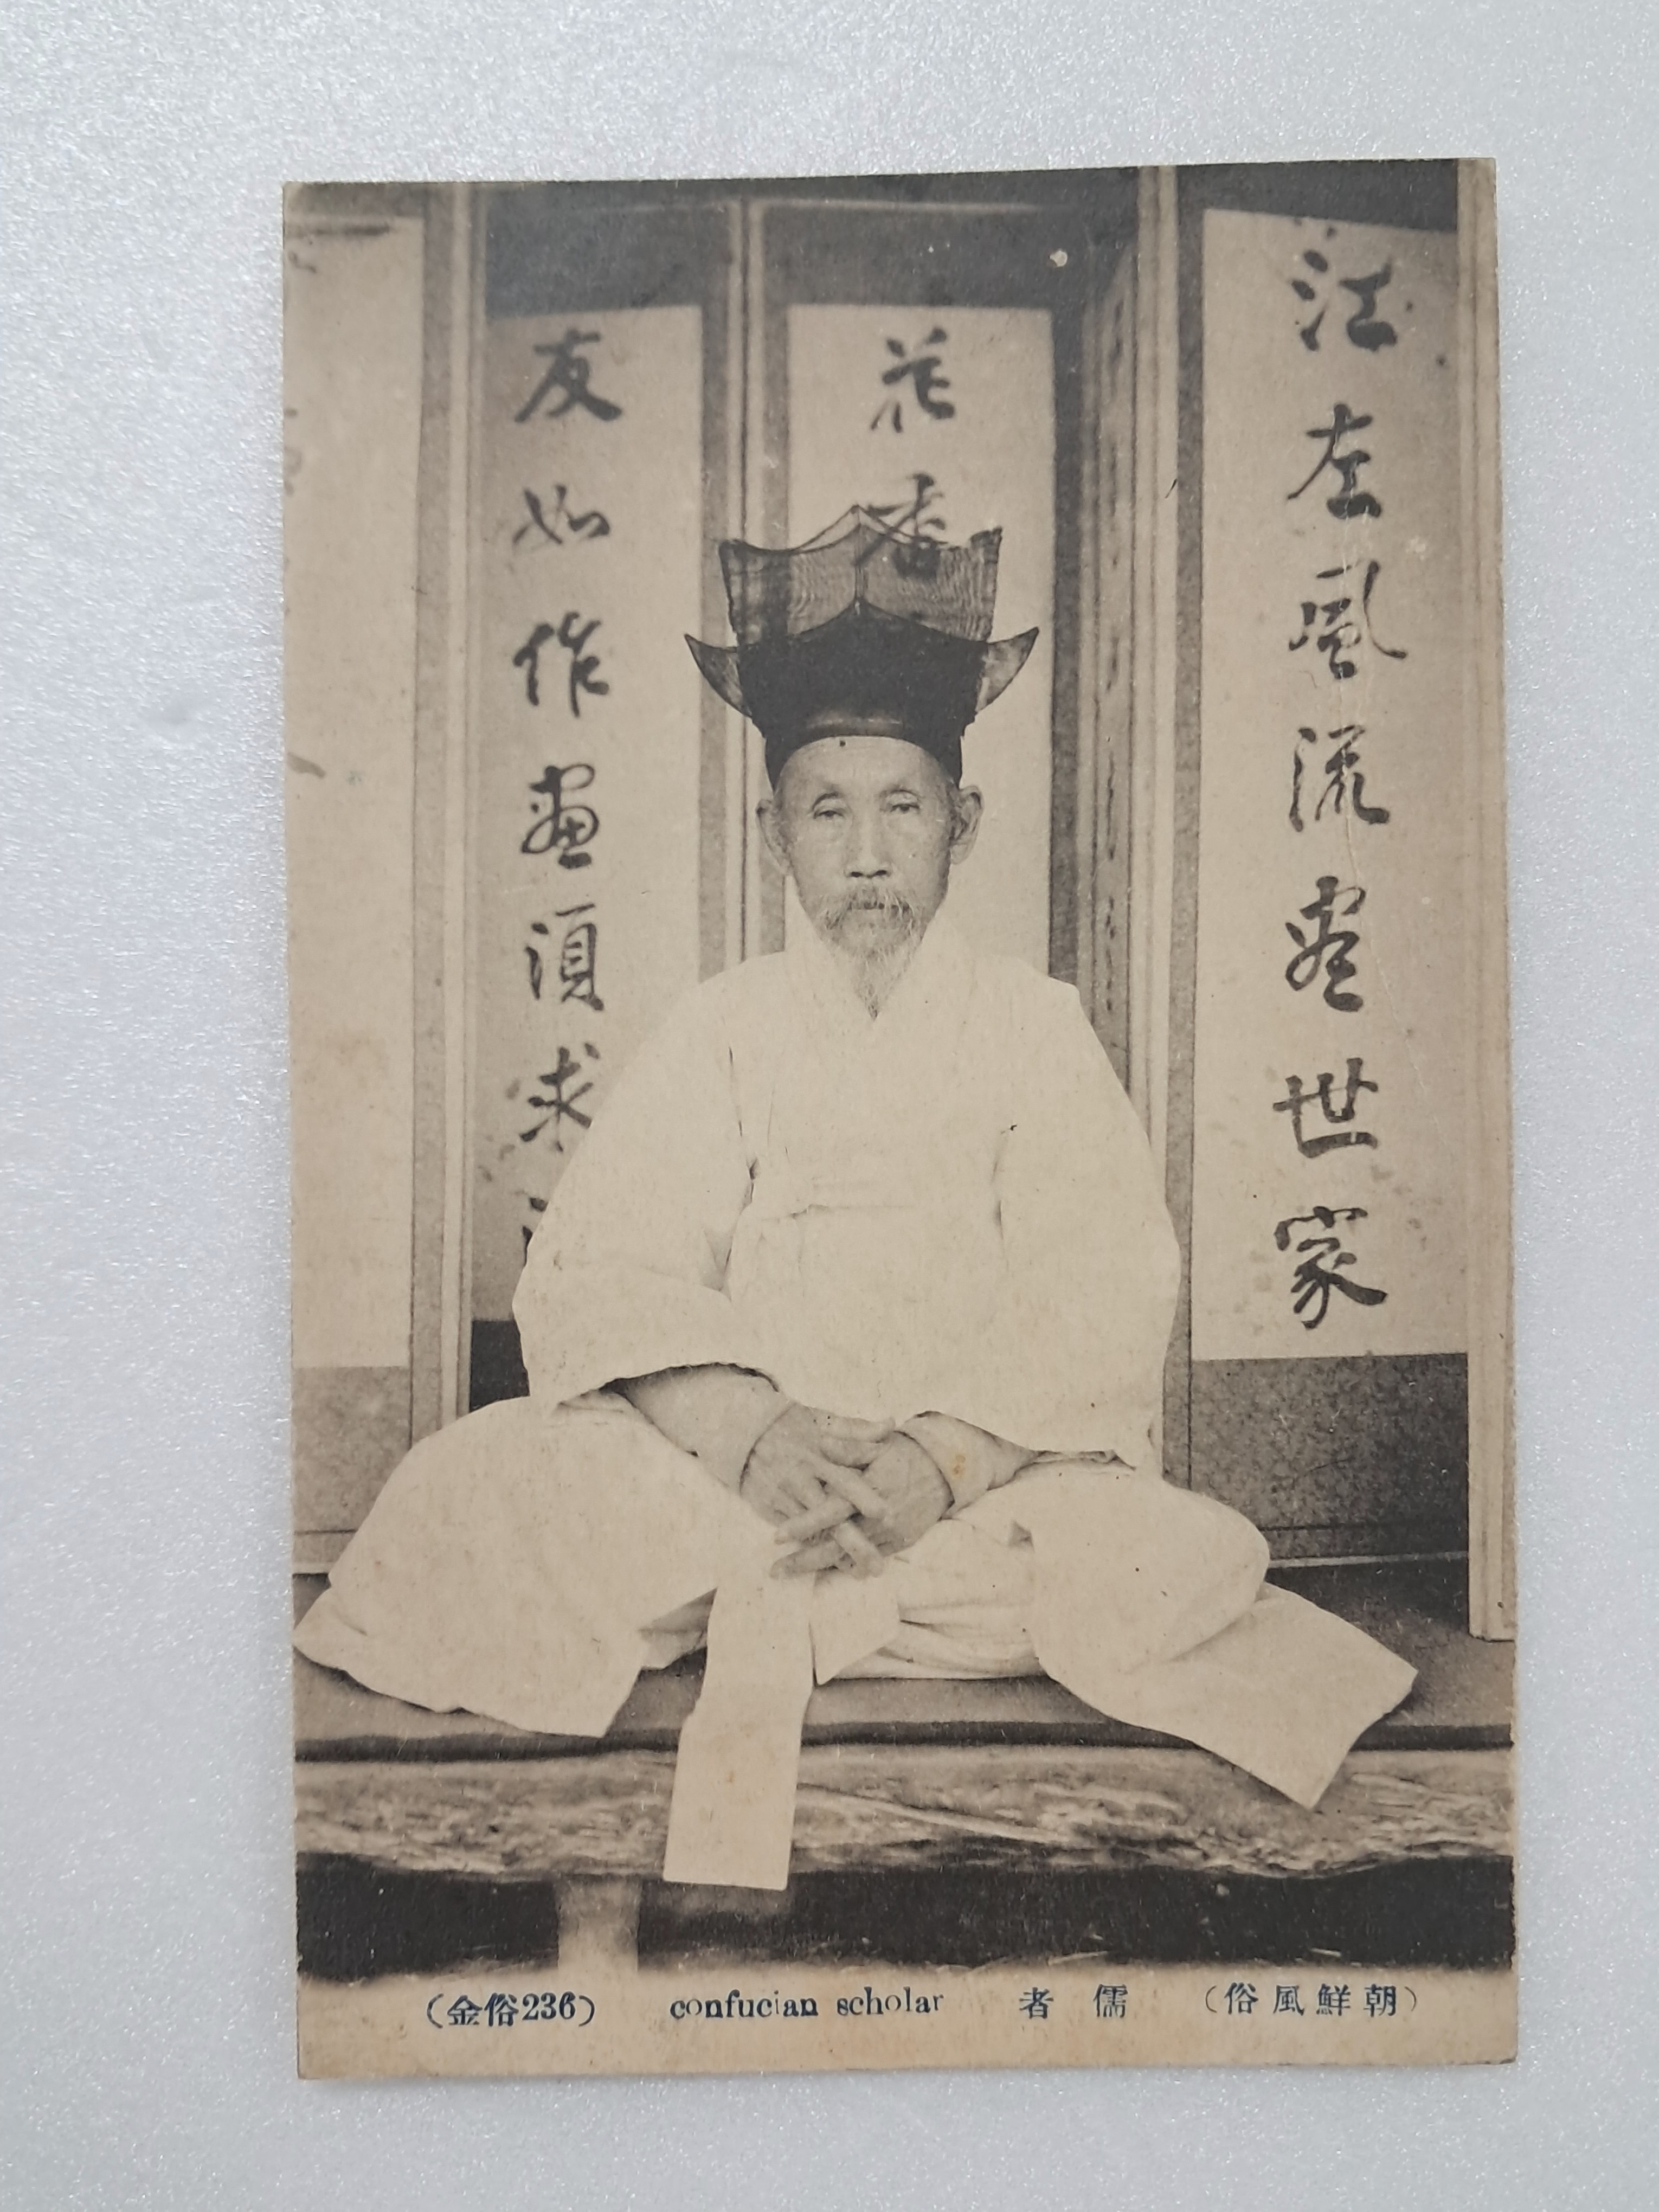 江左風流盡世家
花香
友如作畫須求
(朝鮮風俗) 儒者 confucian scholar (金俗236)